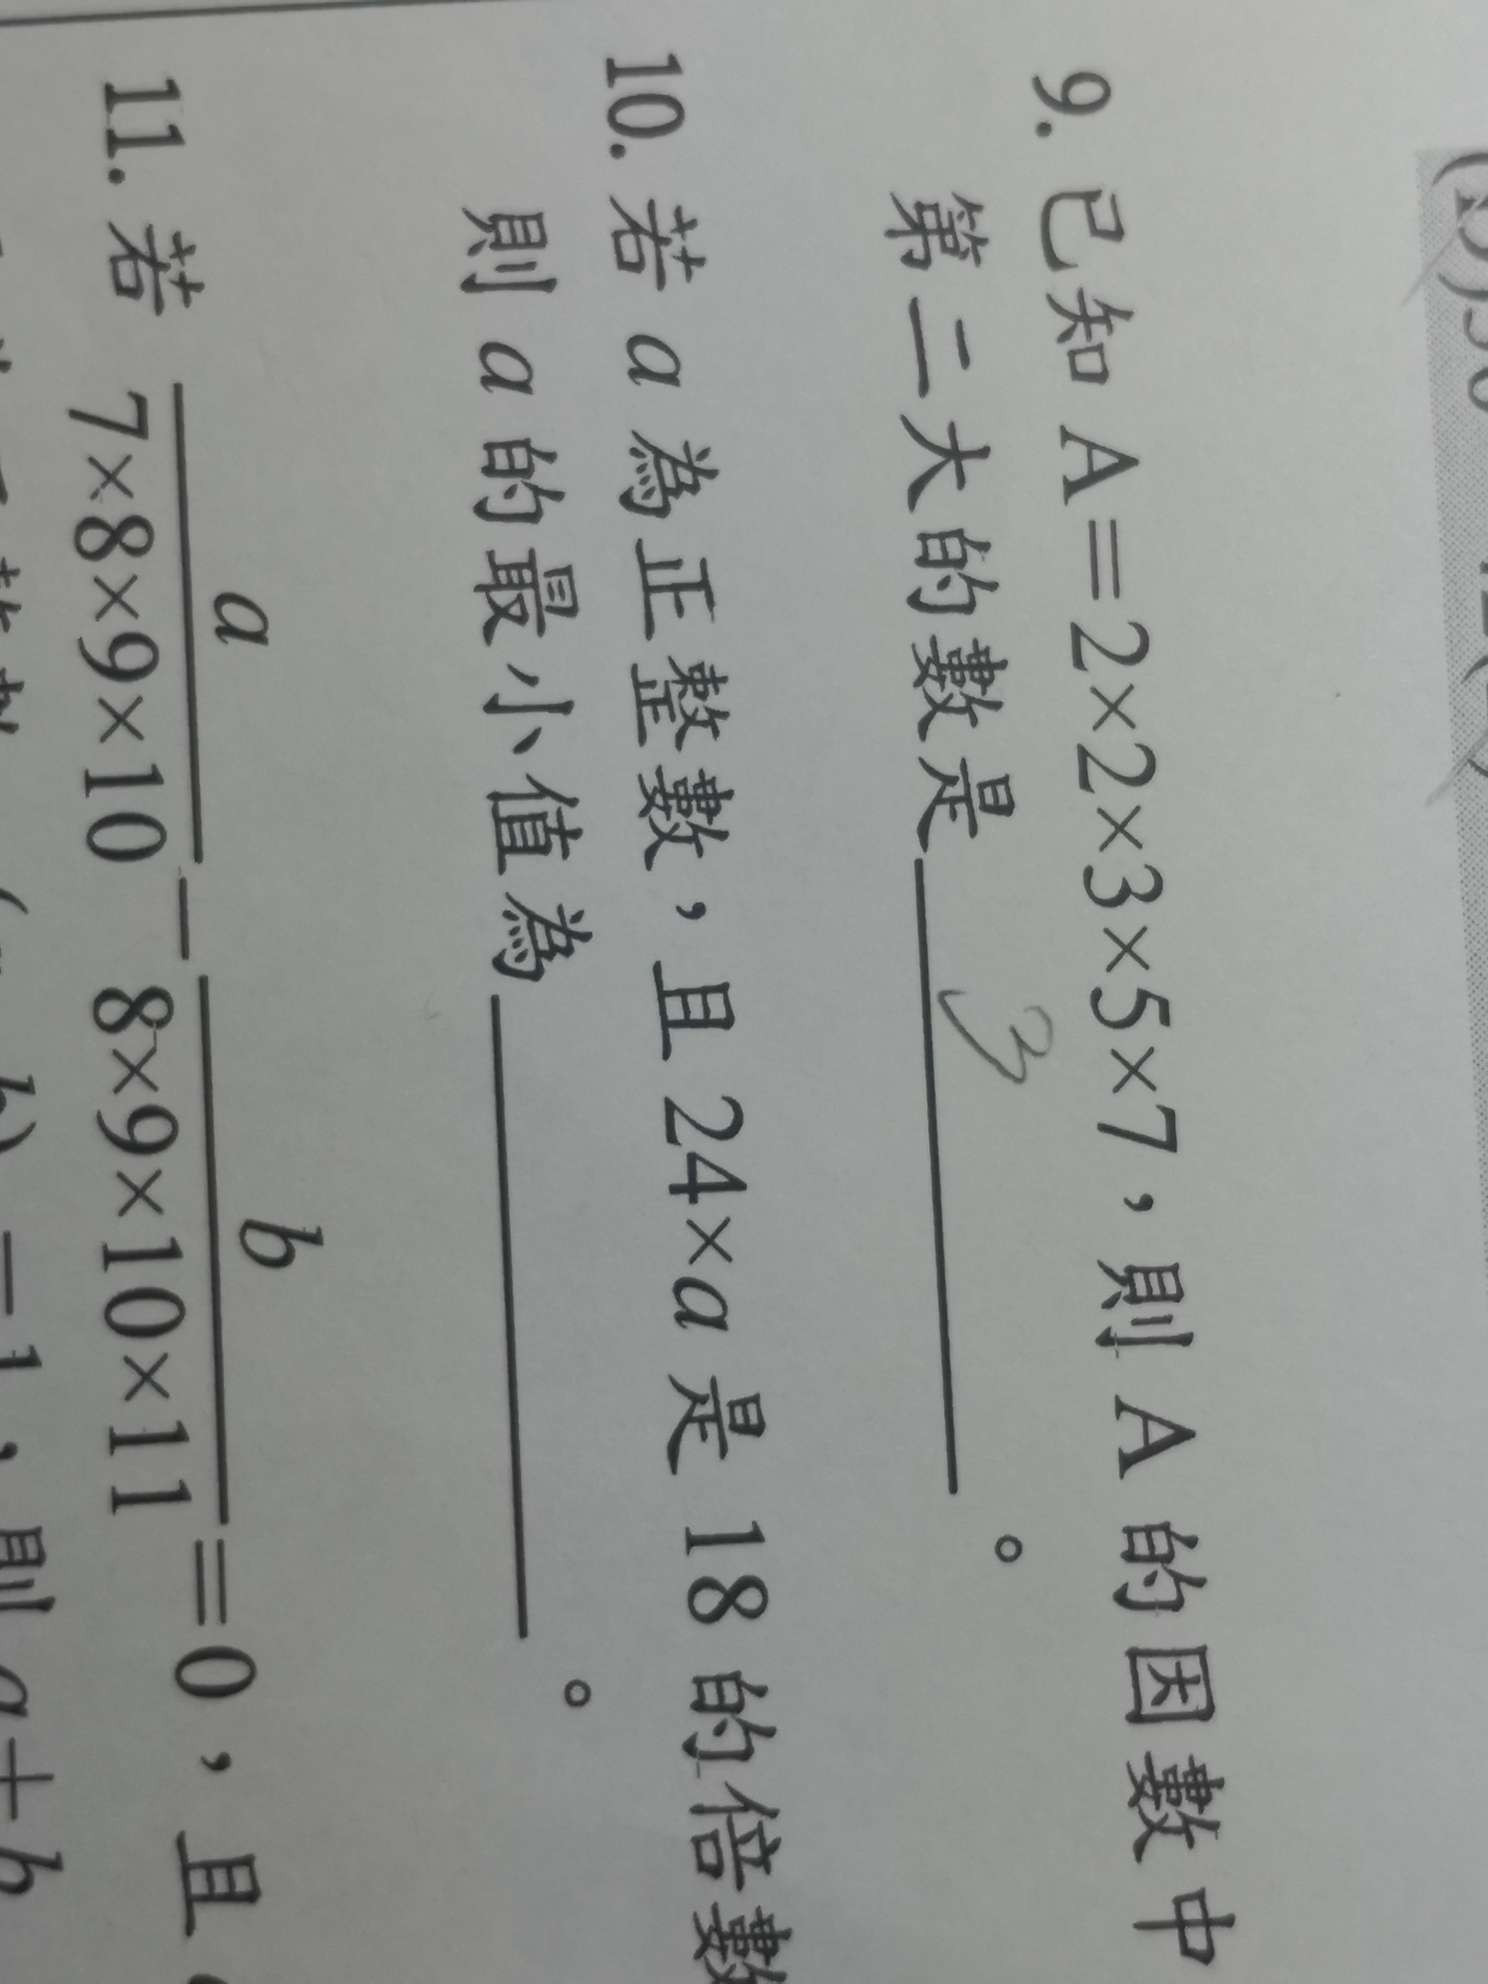 9. 已知 A=2×2×3×5×7，則 A 的因數中
第二大的數是＿＿＿＿。
3
10. 若 a 為正整數，且 24×a 是 18 的倍數
則 a 的最小值為＿＿＿＿。
11. 若 a/(7×8×9×10) − b/(8×9×10×11) =0，且
=1，則 a+b